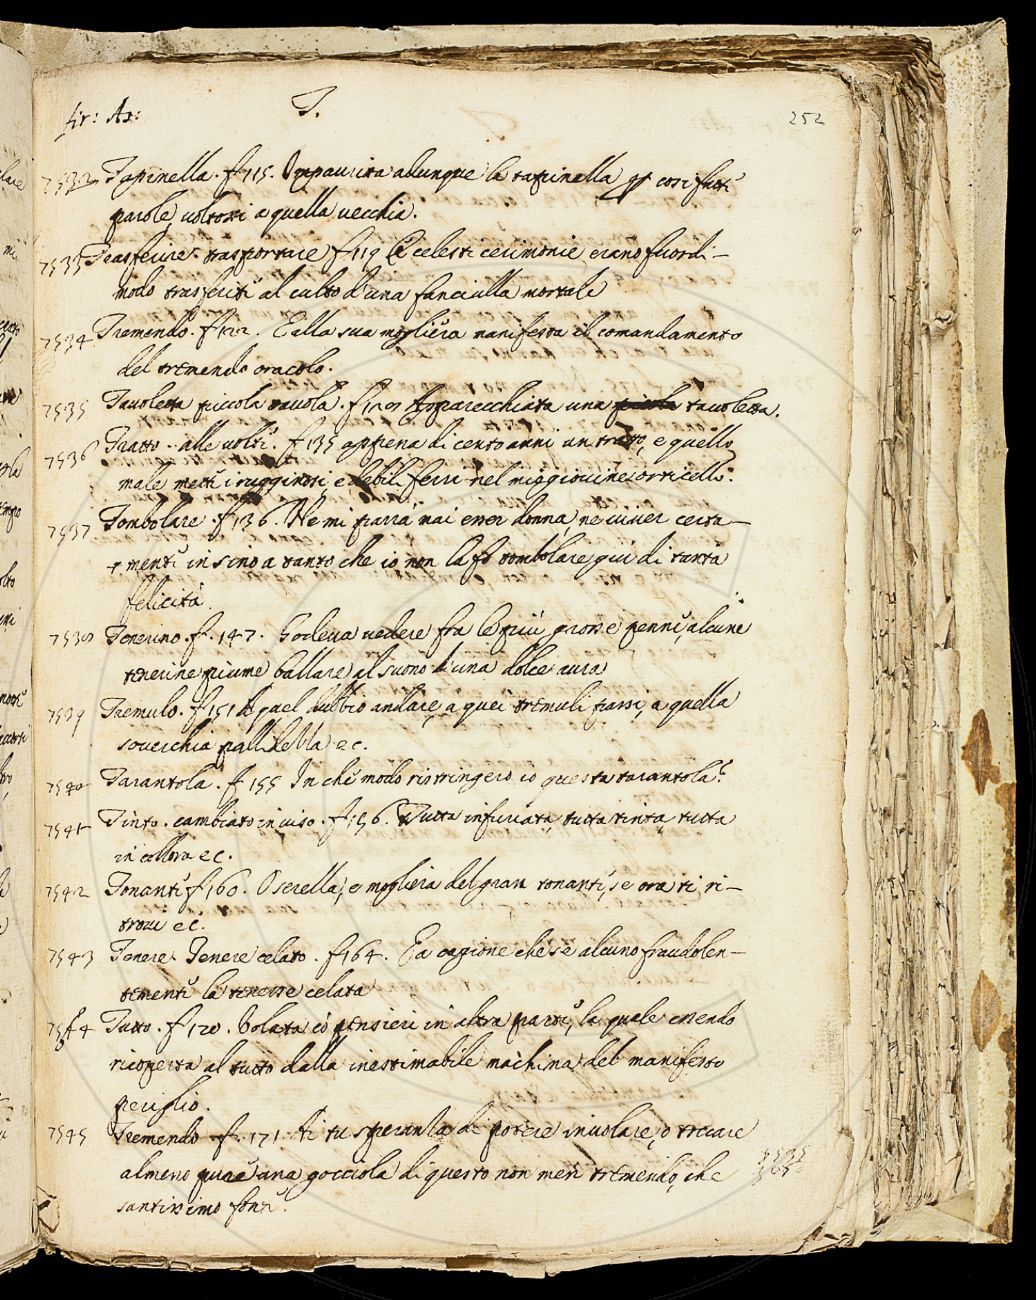 fir: As: T. 252
7532 Tapinella. f 115. Impaurita adunque la tapinella p cosi fatte
parole voltossi a quella vecchia.
7533 Trasferire. trasportare f 119 Le celesti cerimonie erano fuor di-
modo trasferite al culto d'una fanciulla mortale
7534 Tremendo. f 122. E alla sua mogliera manifesta il comandamento
del tremendo oracolo.
7535 Tavoletta piccola tavola. f 129 Apparecchiata una tavoletta.
7536 Tratto. alle volte. f 135 appena di cento anni un tratto, e quello
male
7537 Tombolare. f 136. Ne mi parrà mai esser donna, ne viver certa-
mente insino a tanto che io non la fo tombolare giù di tanta
felicità.
7538 Tenerino. f. 147. Godeva vedere fra le più grosse penne, alcune
tenerine piume ballare al suono d'una dolce aura
7539 Tremulo. f 151 quel dubbio andare, a quei tremuli passi, a quella
soverchia pallidezza ec.
7540 Tarantola. f 155 In che modo ristringerò io questa tarantola?
7541 Tinto. cambiato in viso. f 156. Tutta infuriata, tutta tinta, tutta
in collora ec.
7542 Tonante f 160. O sorella, e mogliera del gran tonante, se ora ti ri-
trovi ec.
7543 Tenere. Tenere celato. f 164. E a cagione che se alcuno fraudolen-
temente la tenesse celata
7544 Tutto. f 170. Volata co pensieri in altra parte, la quale essendo
ricoperta al tutto dalla inestimabile machina del manifesto
periglio.
7545 Tremendo f. 171 Ai tu speranza di potere involare, o toccare
almeno pure una gocciola di questo non men tremendo, che
santissimo fonte.